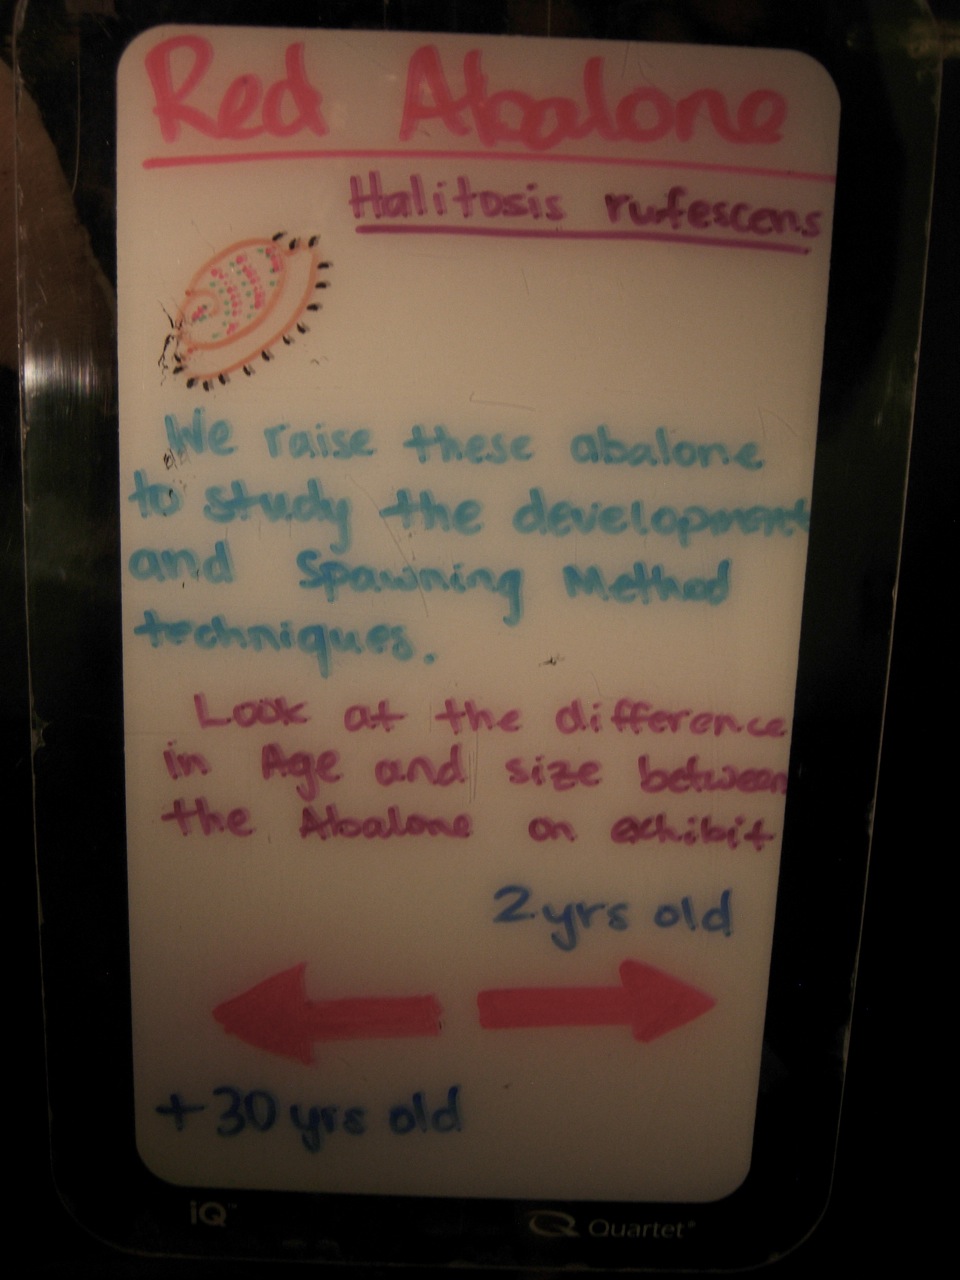 Red Abalone
Halitosis rufescens
We raise these abalone
to study the development
and Spawning Method
techniques.
Look at the difference
in Age and size between
the Abalone on exhibit
2 yrs old
+30 yrs old
iQ™
Quartet®